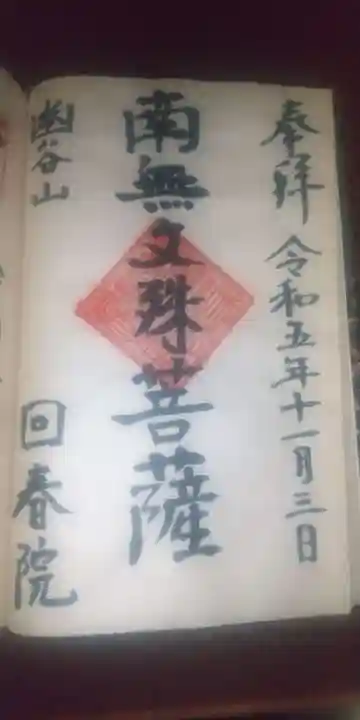 奉拝 令和五年十一月三日
南無文殊菩薩
幽谷山 回春院